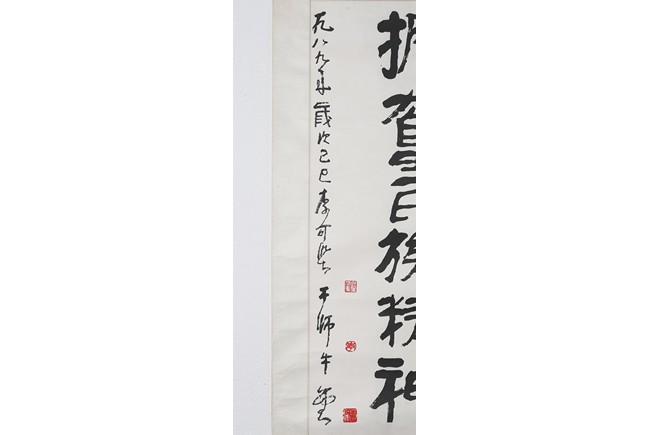 振奮民族精神
一九八九年歲次己巳李可染于師牛堂